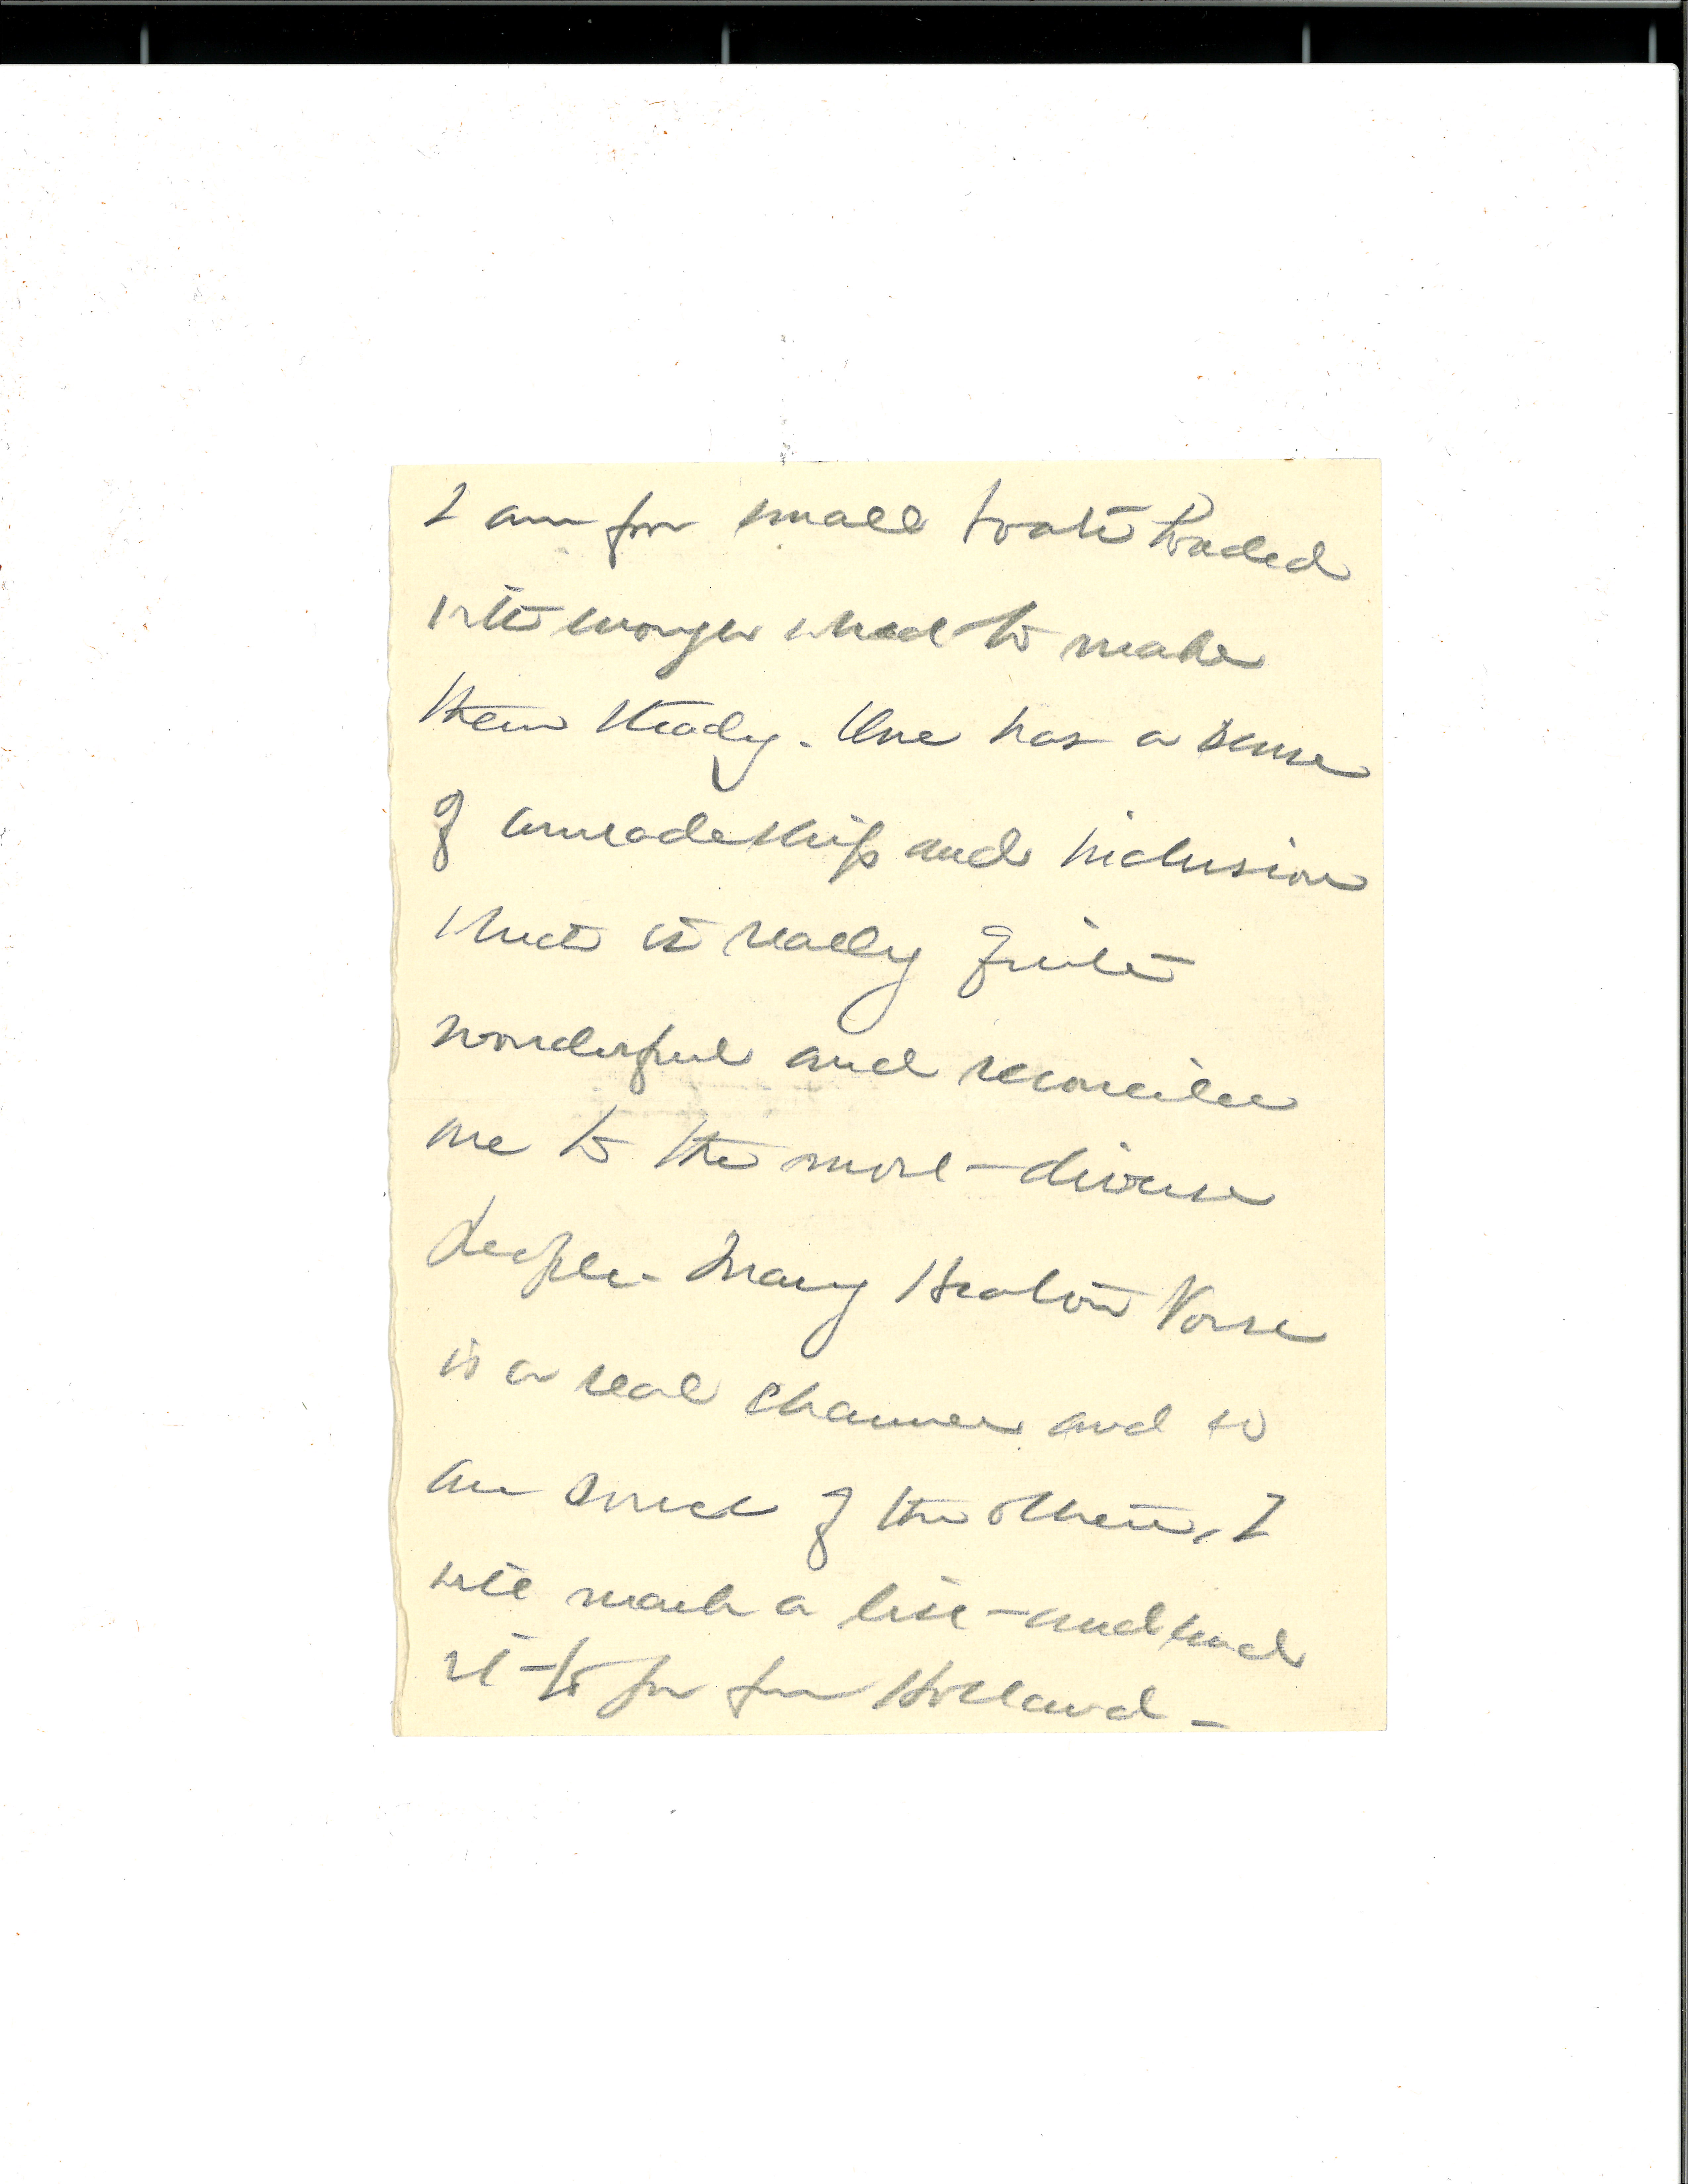 I am for small boats loaded
with enough wheat to make
them steady. One has a sense
of comradeship and inclusion
that is really quite
wonderful and reconciles
me to the most diverse
people. Mary Heaton Vorse
is a real charmer and so
are some of the others. I
will mark a list and send
it to you from Holland –